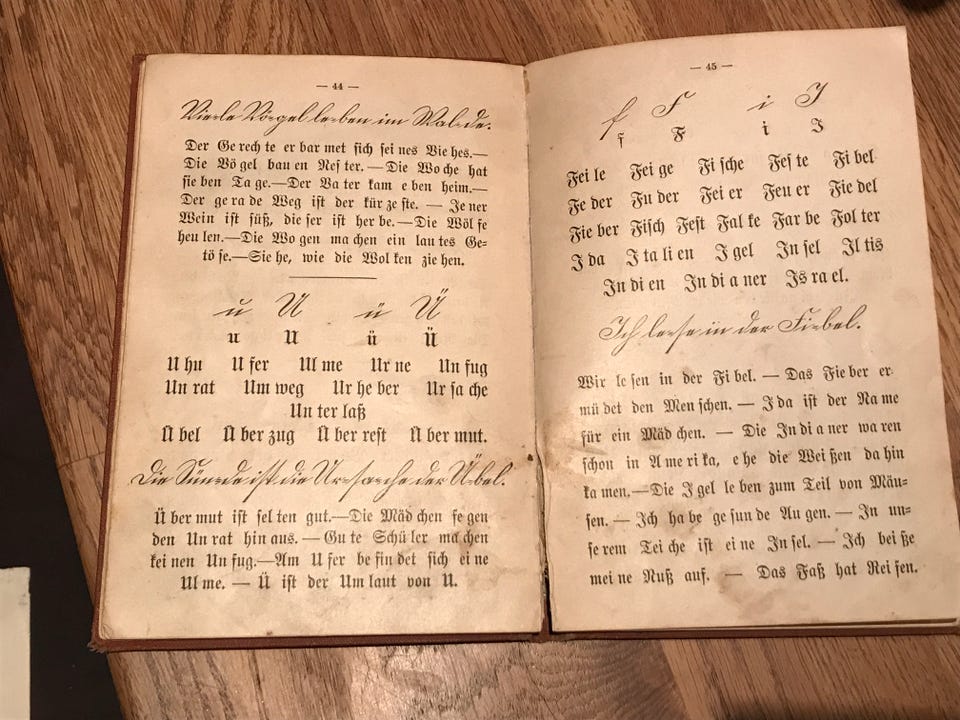 — 44 —
Vie-le Vö-gel le-ben im Wal-de.
Der Ge rech te er bar met sich sei nes Vie hes.—
Die Vö gel bau en Nes ter. — Die Wo che hat
sie ben Ta ge.—Der Va ter kam e ben heim.—
Der ge ra de Weg ist der kür ze ste. — Je ner
Wein ist süß, die ser ist her be.—Die Wöl fe
heu len.—Die Wo gen ma chen ein lau tes Ge-
tö se.—Sie he, wie die Wol ken zie hen.
u U ü Ü
u U ü Ü
U hu U fer Ul me Ur ne Un fug
Un rat Um weg Ur he ber Ur sa che
Un ter laß
Ü bel Ü ber zug Ü ber rest Ü ber mut.
Die Sün-de ist die Ur-sa-che der Ü-bel.
Ü ber mut ist sel ten gut.—Die Mäd chen fe gen
den Un rat hin aus. — Gu te Schü ler ma chen
kei nen Un fug.—Am U fer be fin det sich ei ne
Ul me. — Ü ist der Um laut von U.
— 45 —
f F i I
f F i I
Fei le Fei ge Fi sche Fes te Fi bel
Fe der Fu der Fei er Feu er Fie del
Fie ber Fisch Fest Fal ke Far be Fol ter
I da I ta li en I gel In sel Il tis
In di en In di a ner Is ra el.
Ich le-se in der Fi-bel.
Wir le sen in der Fi bel. — Das Fie ber er
mü det den Men schen. — I da ist der Na me
für ein Mäd chen. — Die In di a ner wa ren
schon in A me ri ka, e he die Wei ßen da hin
ka men.—Die I gel le ben zum Teil von Mäu-
sen. — Ich ha be ge sun de Au gen. — In un-
se rem Tei che ist ei ne In sel. — Ich bei ße
mei ne Nuß auf. — Das Faß hat Rei fen.